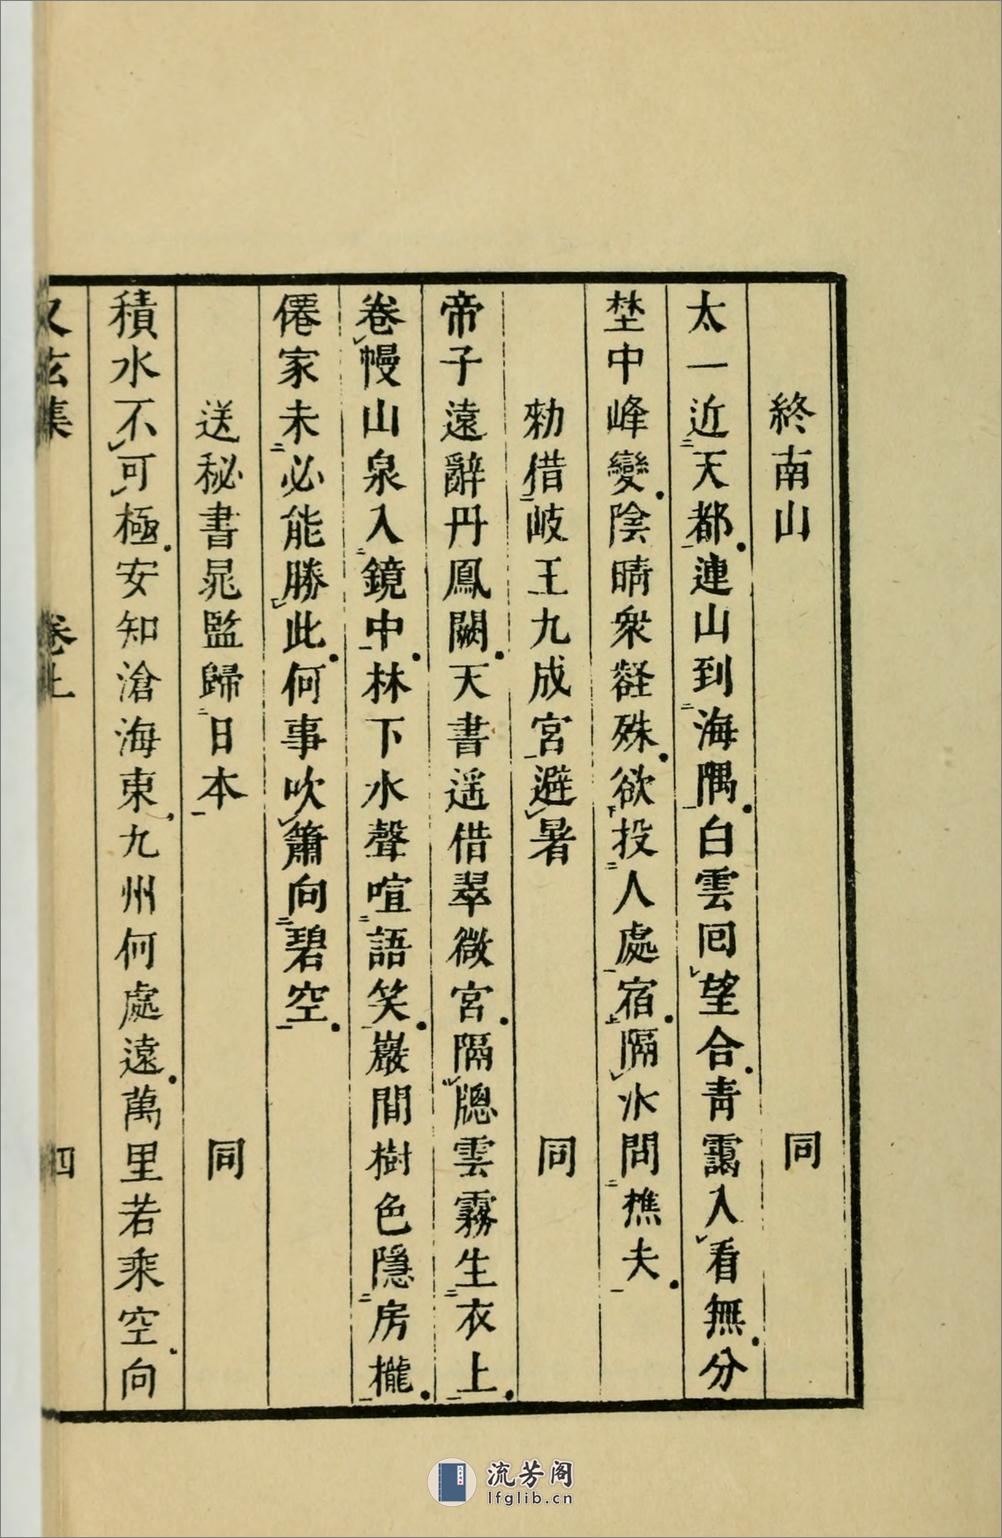 終南山 同
太一近天都連山到海隅白雲回望合青靄入看無分
埜中峰變陰晴衆谿殊欲投人處宿隔水問樵夫
勑借岐王九成宮避暑 同
帝子遠辭丹鳳闕天書遥借翠微宮隔牕雲霧生衣上
卷幔山泉入鏡中林下水聲喧語笑巖間樹色隱房櫳
僊家未必能勝此何事吹簫向碧空
送秘書晁監歸日本 同
積水不可極安知滄海東九州何處遠萬里若乘空向
又玄集 卷上 四
流芳阁
lfglib.cn